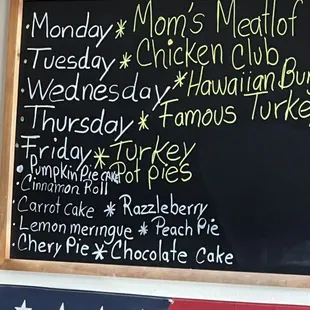 Monday * Mom's Meatlof
Tuesday * Chicken Club
Wednesday * Hawaiian Bur
Thursday * Famous Turke
Friday * Turkey
Pot pies
Pumpkin Pie
Cinnamon Roll
Carrot Cake * Razzleberry
Lemon meringue * Peach Pie
Chery Pie * Chocolate Cake